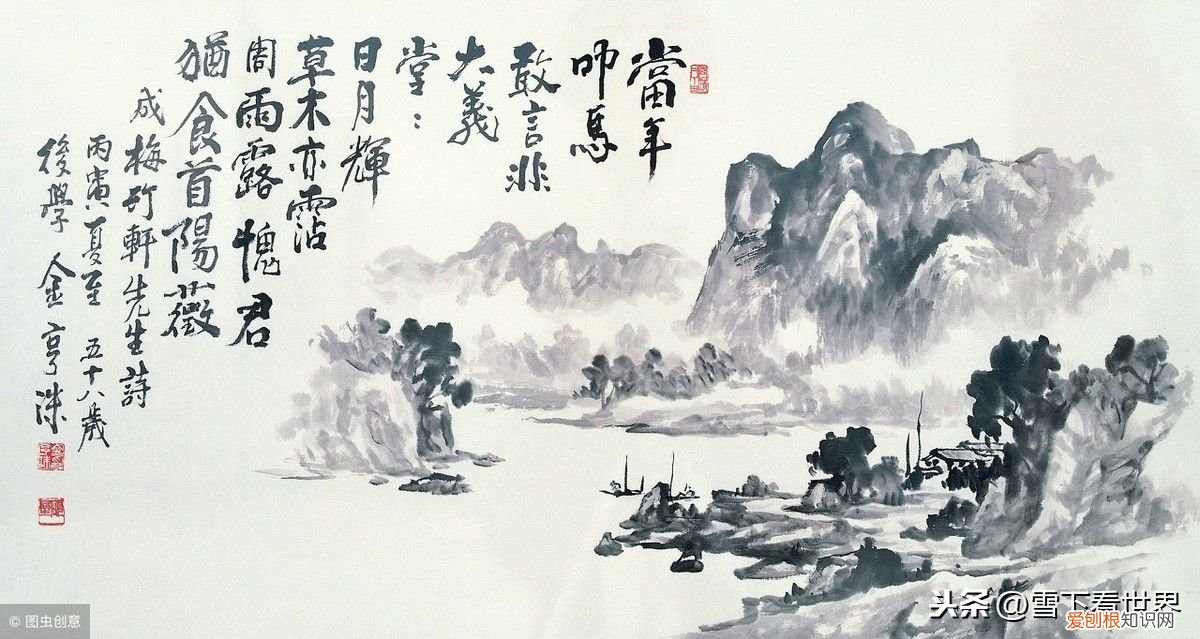 當年
叩馬
敢言非
大義
堂：
日月輝
草木亦霑
周雨露愧君
猶食首陽薇
成梅竹軒先生詩
丙寅夏至 五十八歲
後學 金亨洙
© 图虫创意
头条 @雪下看世界
爱刨根知识网